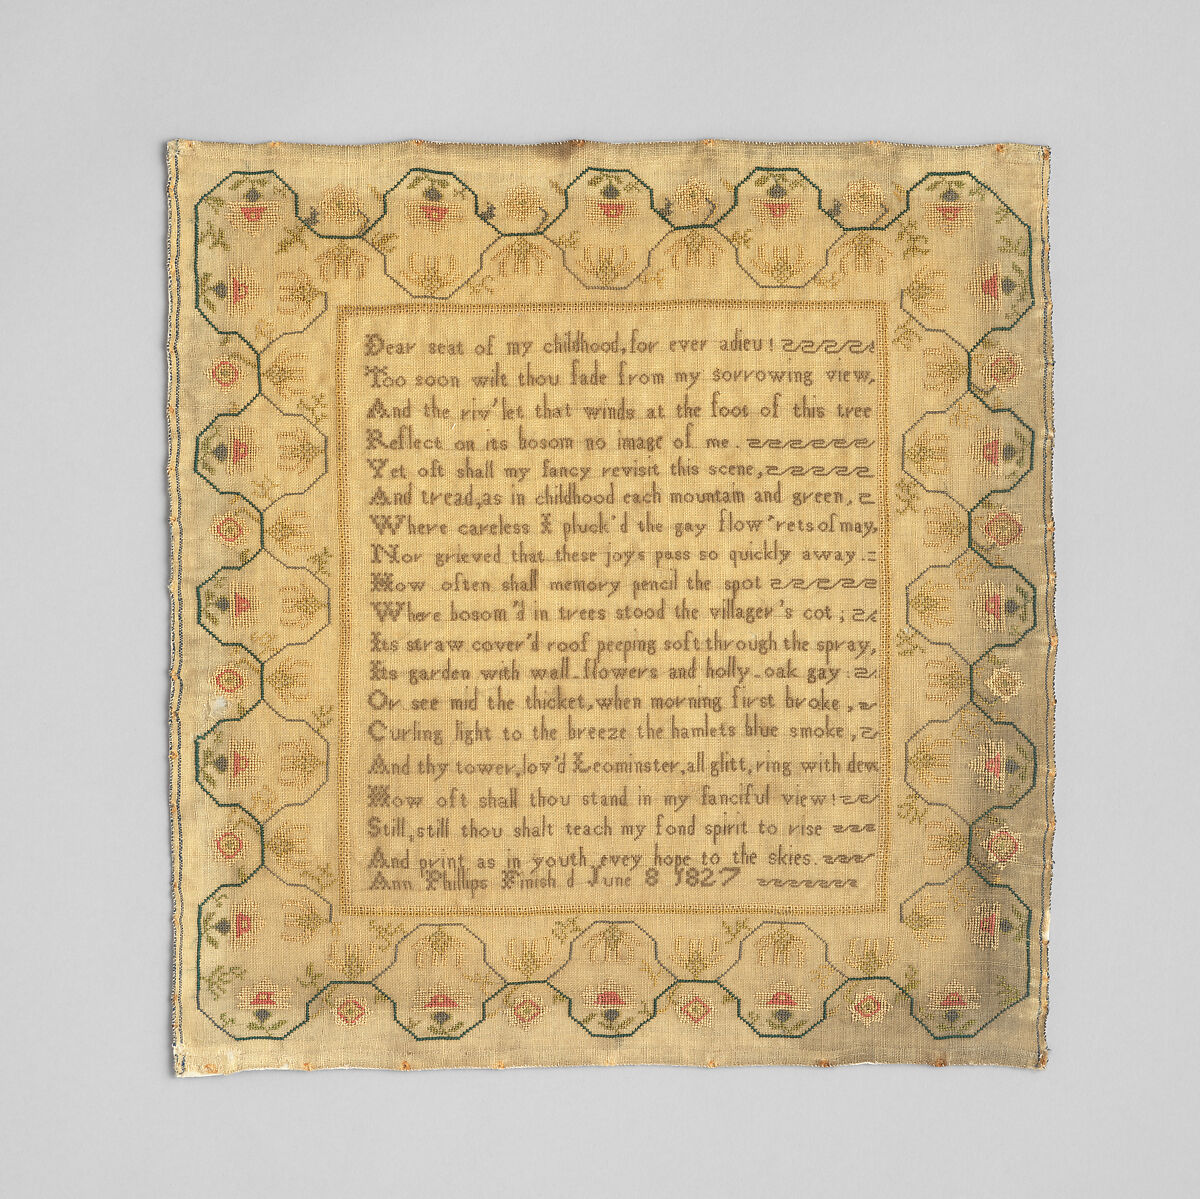 Dear seat of my childhood, for ever adieu!
Too soon wilt thou fade from my sorrowing view,
And the riv'let that winds at the foot of this tree
Reflect on its bosom no image of me.
Yet oft shall my fancy revisit this scene,
And tread, as in childhood each mountain and green,
Where careless I pluck'd the gay flow'rets of may,
Nor grieved that these joys pass so quickly away.
How often shall memory pencil the spot
Where bosom'd in trees stood the villager's cot;
Its straw cover'd roof peeping soft through the spray,
Its garden with wall-flowers and holly-oak gay.
Or see mid the thicket, when morning first broke,
Curling light to the breeze the hamlets blue smoke,
And thy tower, lov'd Leominster, all glitt,ring with dew
How oft shall thou stand in my fanciful view!
Still, still thou shalt teach my fond spirit to rise
And print as in youth evey hope to the skies.
Ann Phillips Finish d June 8 1827